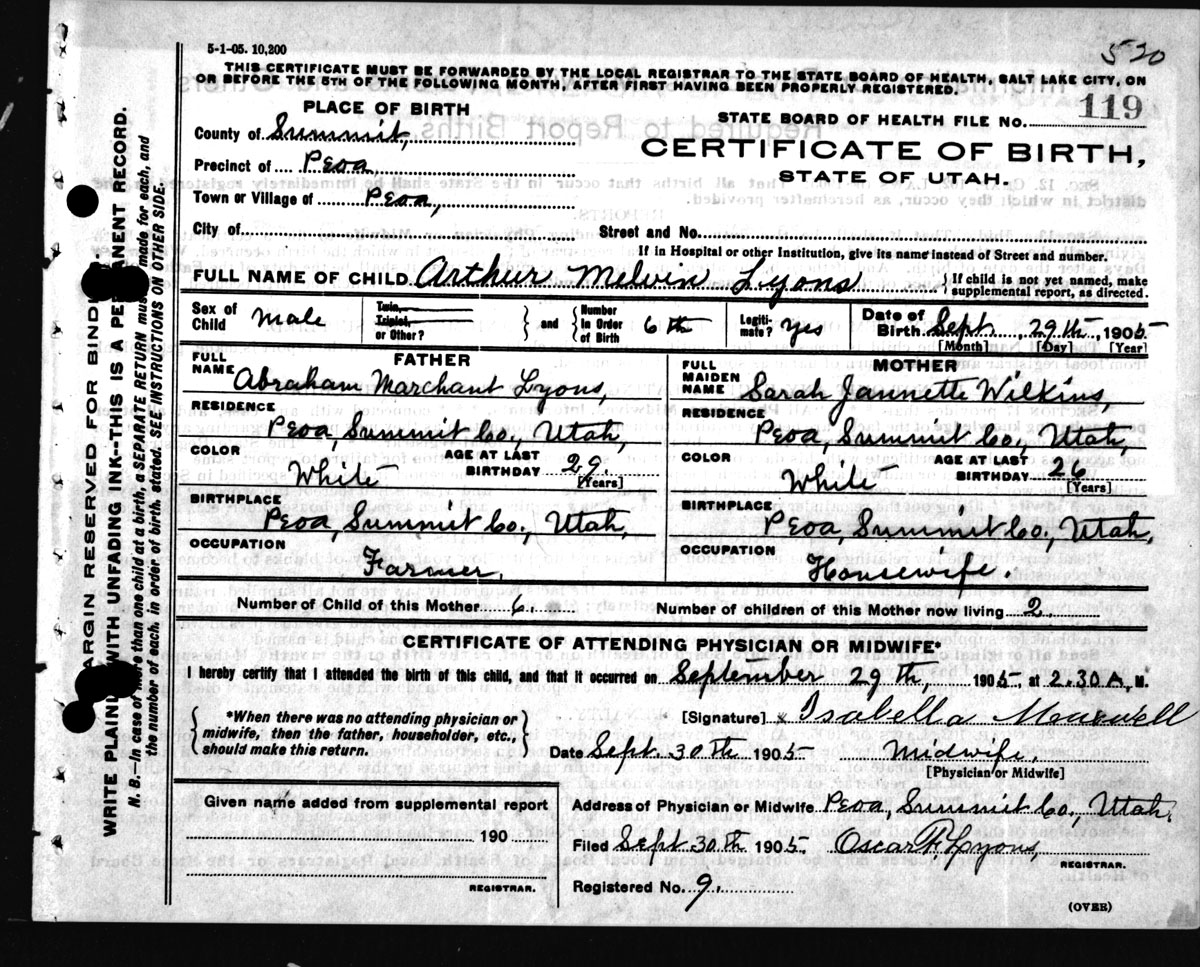 5-1-05. 10,200
520
THIS CERTIFICATE MUST BE FORWARDED BY THE LOCAL REGISTRAR TO THE STATE BOARD OF HEALTH, SALT LAKE CITY, ON
OR BEFORE THE 5TH OF THE FOLLOWING MONTH, AFTER FIRST HAVING BEEN PROPERLY REGISTERED.
PLACE OF BIRTH
STATE BOARD OF HEALTH FILE NO. 119
County of Summit,
CERTIFICATE OF BIRTH,
Precinct of Peoa,
STATE OF UTAH.
Town or Village of Peoa,
City of Street and No.
If in Hospital or other Institution, give its name instead of Street and number.
FULL NAME OF CHILD Arthur Melvin Lyons { If child is not yet named, make supplemental report, as directed.
Sex of Child Male Twin, Triplet, or Other? } and { Number in Order of Birth 6th Legitimate? Yes Date of Birth Sept. 29th, 1905
[Month] [Day] [Year]
FATHER
FULL NAME Abraham Marchant Lyons,
RESIDENCE
Peoa, Summit Co., Utah,
COLOR White AGE AT LAST BIRTHDAY 29. [Years]
BIRTHPLACE
Peoa, Summit Co., Utah,
OCCUPATION
Farmer.
MOTHER
FULL MAIDEN NAME Sarah Jannette Wilkins,
RESIDENCE
Peoa, Summit Co., Utah,
COLOR White AGE AT LAST BIRTHDAY 26 [Years]
BIRTHPLACE
Peoa, Summit Co., Utah,
OCCUPATION
Housewife.
Number of Child of this Mother 6. Number of children of this Mother now living 2.
CERTIFICATE OF ATTENDING PHYSICIAN OR MIDWIFE*
I hereby certify that I attended the birth of this child, and that it occurred on September 29th, 1905, at 2.30 A. M.
{ *When there was no attending physician or midwife, then the father, householder, etc., should make this return. }
[Signature] x Isabella
Date Sept. 30th 1905 Midwife.
[Physician or Midwife]
Given name added from supplemental report
190
REGISTRAR.
Address of Physician or Midwife Peoa, Summit Co., Utah.
Filed Sept 30th 1905 Oscar F. Lyons,
REGISTRAR.
Registered No. 9.
(OVER)
MARGIN RESERVED FOR BINDING.
WRITE PLAINLY WITH UNFADING INK--THIS IS A PERMANENT RECORD.
N. B.—In case of more than one child at a birth, a SEPARATE RETURN must be made for each, and
the number of each, in order of birth, stated. SEE INSTRUCTIONS ON OTHER SIDE.